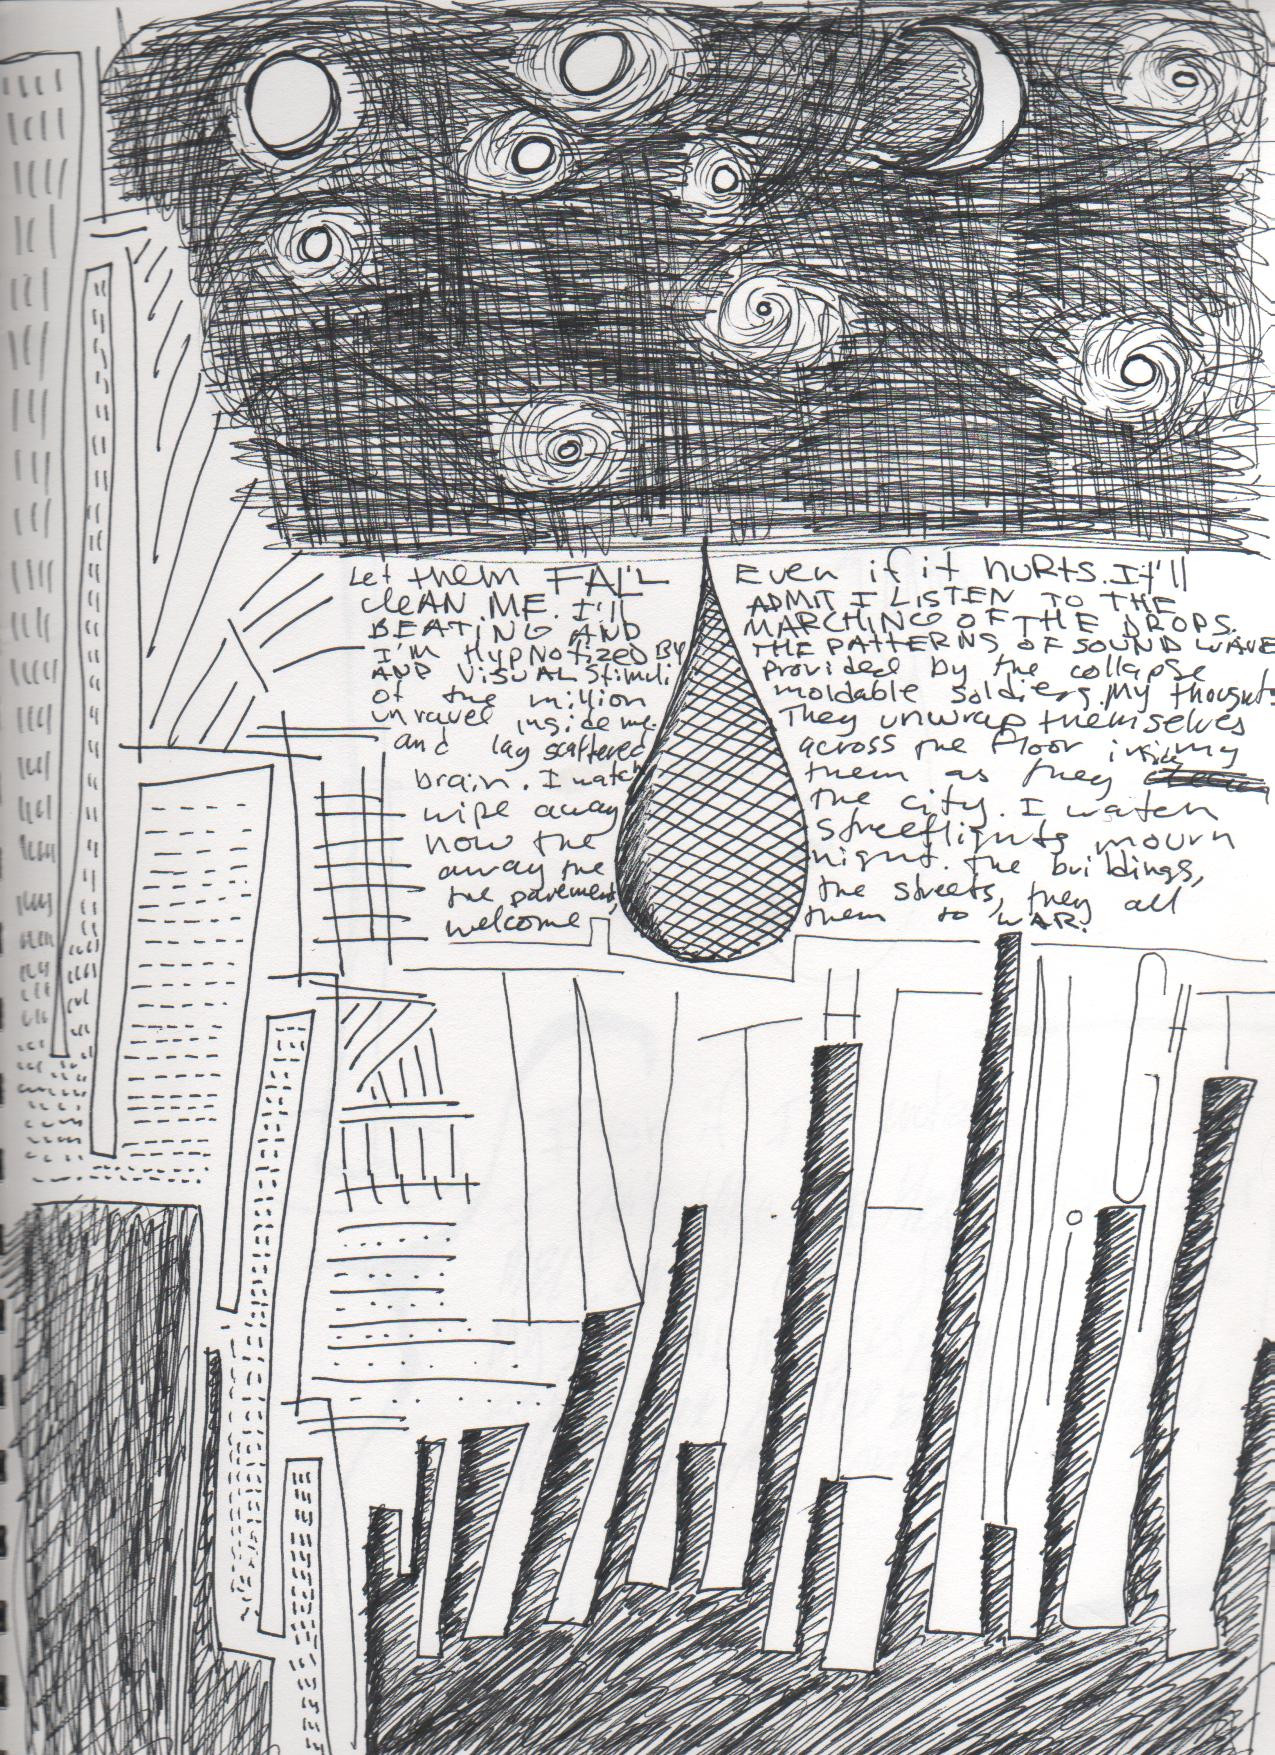 Let them FALL Even if it hurts. It'll
cleAN ME. I'll ADMIT I LISTEN TO THE
BEATING AND MARCHING OF THE DROPS.
I'M HYPNOTIZED BY THE PATTERNS OF SOUND WAVE
AND VISUAL Stimuli provided by the collapse
of the million moldable soldiers. My thoughts
unravel inside me. They unwrap themselves
and lay scattered across the floor inside my
brain. I watch them as they
wipe away the city. I watch
how the streetlights mourn
away the night. the buildings,
the pavement, the streets, they all
welcome them to WAR.